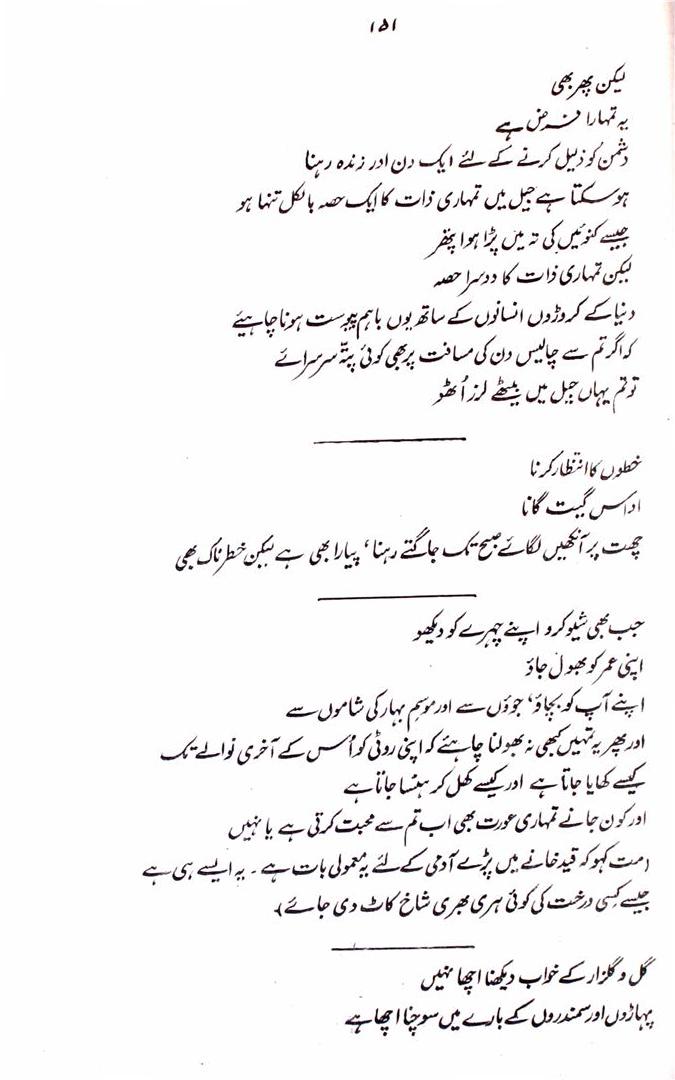 ۱۵۱
لیکن پھر بھی
یہ تمہارا فرض ہے
دشمن کو ذلیل کرنے کے لئے ایک دن اور زندہ رہنا
ہو سکتا ہے جیل میں تمہاری ذات کا ایک حصہ بالکل تنہا ہو
جیسے کنوئیں کی تہ میں پڑا ہوا پتھر
لیکن تمہاری ذات کا دوسرا حصہ
دنیا کے کروڑوں انسانوں کے ساتھ یوں باہم پیوست ہونا چاہیئے
کہ اگر تم سے چالیس دن کی مسافت پر بھی کوئی پتّہ سرسرائے
تو تم یہاں جیل میں بیٹھے لرز اُٹھو
خطوں کا انتظار کرنا
اداس گیت گانا
چھت پر آنکھیں لگائے صبح تک جاگتے رہنا، پیارا بھی ہے لیکن خطرناک بھی
جب بھی شیو کرو اپنے چہرے کو دیکھو
اپنی عمر کو بھول جاؤ
اپنے آپ کو بچاؤ، جوؤں سے اور موسمِ بہار کی شاموں سے
اور پھر یہ تمہیں کبھی نہ بھولنا چاہئے کہ اپنی روٹی کو اُس کے آخری نوالے تک
کیسے کھایا جاتا ہے اور کیسے کھل کر ہنسا جاتا ہے
اور کون جانے تمہاری عورت بھی اب تم سے محبت کرتی ہے یا نہیں
(مت کہو کہ قید خانے میں پڑے آدمی کے لئے یہ معمولی بات ہے ۔ یہ ایسے ہی ہے
جیسے کسی درخت کی کوئی ہری بھری شاخ کاٹ دی جائے)
گل و گلزار کے خواب دیکھنا اچھا نہیں
پہاڑوں اور سمندروں کے بارے میں سوچنا اچھا ہے